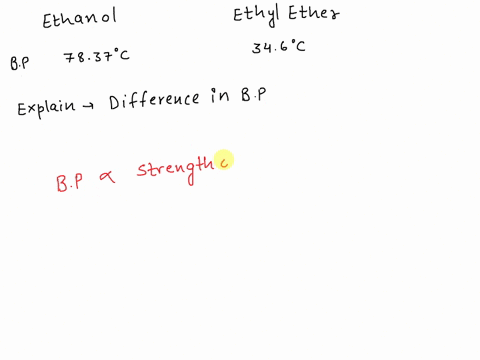 Ethanol Ethyl Ether
B.P 78.37°C 34.6°C
Explain → Difference in B.P
B.P ∝ strength c